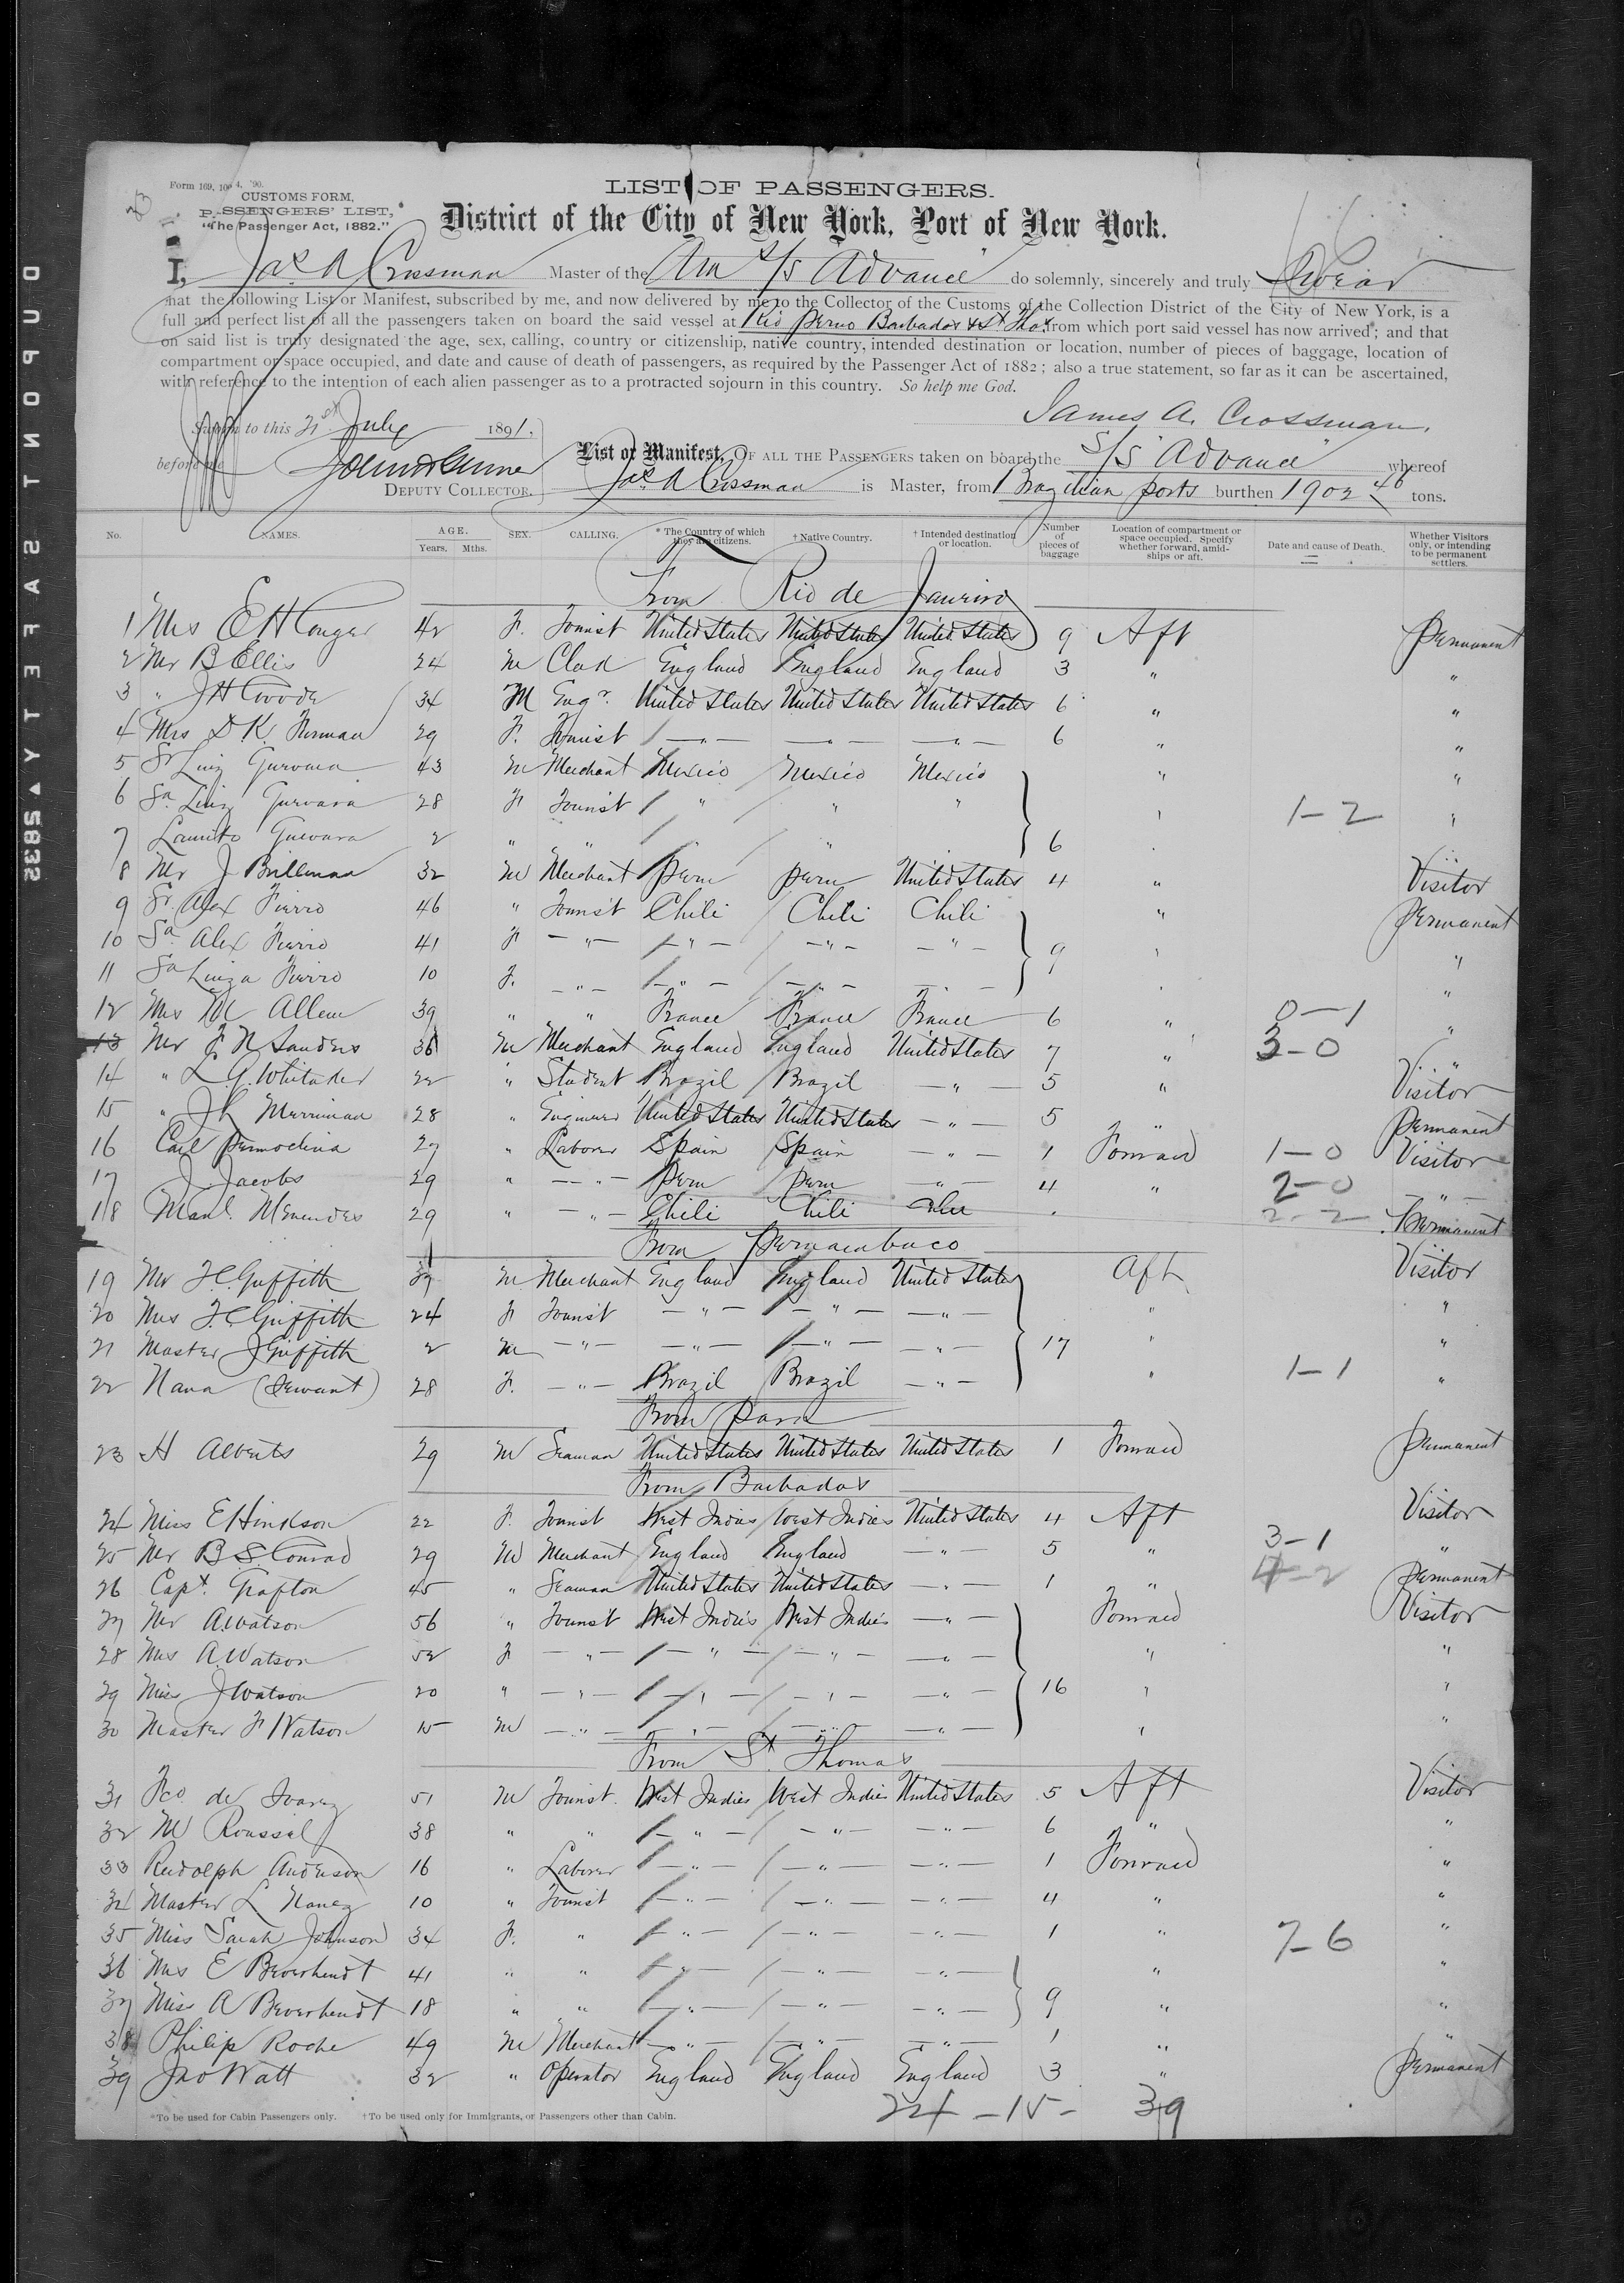 DUPONT SAFETY 5832
Form 109.
CUSTOMS FORM,
PASSENGERS' LIST,
"The Passenger Act, 1882."
LIST OF PASSENGERS.
District of the City of New York, Port of New York.
I, Jas A Crossman Master of the Am S/S Advance do solemnly, sincerely and truly Swear
that the following List or Manifest, subscribed by me, and now delivered by me to the Collector of the Customs of the Collection District of the City of New York, is a
full and perfect list of all the passengers taken on board the said vessel at Rio Barbados & St Thos from which port said vessel has now arrived; and that
on said list is truly designated the age, sex, calling, country or citizenship, native country, intended destination or location, number of pieces of baggage, location of
compartment or space occupied, and date and cause of death of passengers, as required by the Passenger Act of 1882; also a true statement, so far as it can be ascertained,
with reference to the intention of each alien passenger as to a protracted sojourn in this country. So help me God.
James A. Crossman.
Sworn to this July 1891.
before me
DEPUTY COLLECTOR.
List or Manifest, OF ALL THE PASSENGERS taken on board the S/S Advance whereof
Jas A Crossman is Master, from Brazilian ports burthen 1902 46 tons.
No. NAMES. AGE. Years. Mths. SEX. CALLING. * The Country of which they are citizens. † Native Country. † Intended destination or location. Number of pieces of baggage Location of compartment or space occupied. Specify whether forward, amidships or aft. Date and cause of Death. Whether Visitors only, or intending to be permanent settlers.
From Rio de Janeiro
1 Mrs E H Conger 42 F. Tourist United States United States United States 9 Aft Permanent
2 Mr B Ellis 24 M Clerk England England England 3 " "
3 " J H 34 M Engr. United States United States United States 6 " "
4 Mrs D K. 29 F. Tourist — " — — " — — " — 6 " "
5 Sr Luiz Guevara 43 M Merchant Mexico Mexico Mexico " "
6 Sa Luiz Guevara 28 F Tourist " " " " 1-2 "
7 Guevara 2 " " " 6
8 Mr J 32 M Merchant Peru Peru United States 4 " Visitor
9 Sr Alex Fierro 46 " Tourist Chili Chili Chili " Permanent
10 Sa Alex Fierro 41 F — " — — " — — " — — " — 9 " "
11 Sa Luiza Fierro 10 F. — " — — " — — " — — " — "
12 Mrs M Allen 39 " " France France France 6 " 0-1 "
13 Mr F N Sanders 36 M Merchant England England United States 7 " 3-0 "
14 " L. G. Whitaker 22 " Student Brazil Brazil — " — 5 " Visitor
15 " J h Merriman 28 " Engineer United States United States — " — 5 " Permanent
16 Carl 27 " Laborer Spain Spain — " — 1 Forward 1-0 Visitor
17 J. Jacobs 29 " — " — Peru Peru — " — 4 " 2-0 "
18 Manl. Menendes 29 " — " — Chili Chili 2-2 Permanent
From Pernambuco
19 Mr F. C. Griffith 39 M Merchant England England United States Aft Visitor
20 Mrs F. C. Griffith 24 F Tourist — " — — " — — " — " "
21 Master J Griffith 2 M — " — — " — — " — — " — 17 " "
22 Nana (Servant) 28 F. — " — Brazil Brazil — " — " 1-1 "
From Para
23 H Alberts 29 M Seaman United States United States United States 1 Forward Permanent
From Barbados
24 Miss E Hinkson 22 F. Tourist West Indies West Indies United States 4 Aft Visitor
25 Mr B S. Conrad 29 M Merchant England England — " — 5 " 3-1 "
26 Capt. Grafton 45 " Seaman United States United States — " — 1 " 4-2 Permanent
27 Mr A. Watson 56 " Tourist West Indies West Indies — " — Forward Visitor
28 Mrs A. Watson 52 F — " — — " — — " — — " — " "
29 Miss J Watson 20 " — " — — " — — " — — " — 16 " "
30 Master F Watson 15 M — " — — " — — " — — " — " "
From St. Thomas
31 Fco. de 51 M Tourist West Indies West Indies United States 5 Aft Visitor
32 M Roussel 38 " " — " — — " — — " — 6 " "
33 Rudolph Anderson 16 " Laborer — " — — " — — " — 1 Forward "
34 Master L 10 " Tourist — " — — " — — " — 4 " "
35 Miss Sarah Johnson 34 F. " — " — — " — — " — 1 " 7-6 "
36 Mrs E Beverhoudt 41 " " — " — — " — — " — " "
37 Miss A Beverhoudt 18 " " — " — — " — — " — 9 " "
38 Philip Roche 49 M Merchant — " — — " — — " — 1 " "
39 Jno Watt 32 " Operator England England England 3 " Permanent
24 - 15 - 39
*To be used for Cabin Passengers only. †To be used only for Immigrants, or Passengers other than Cabin.